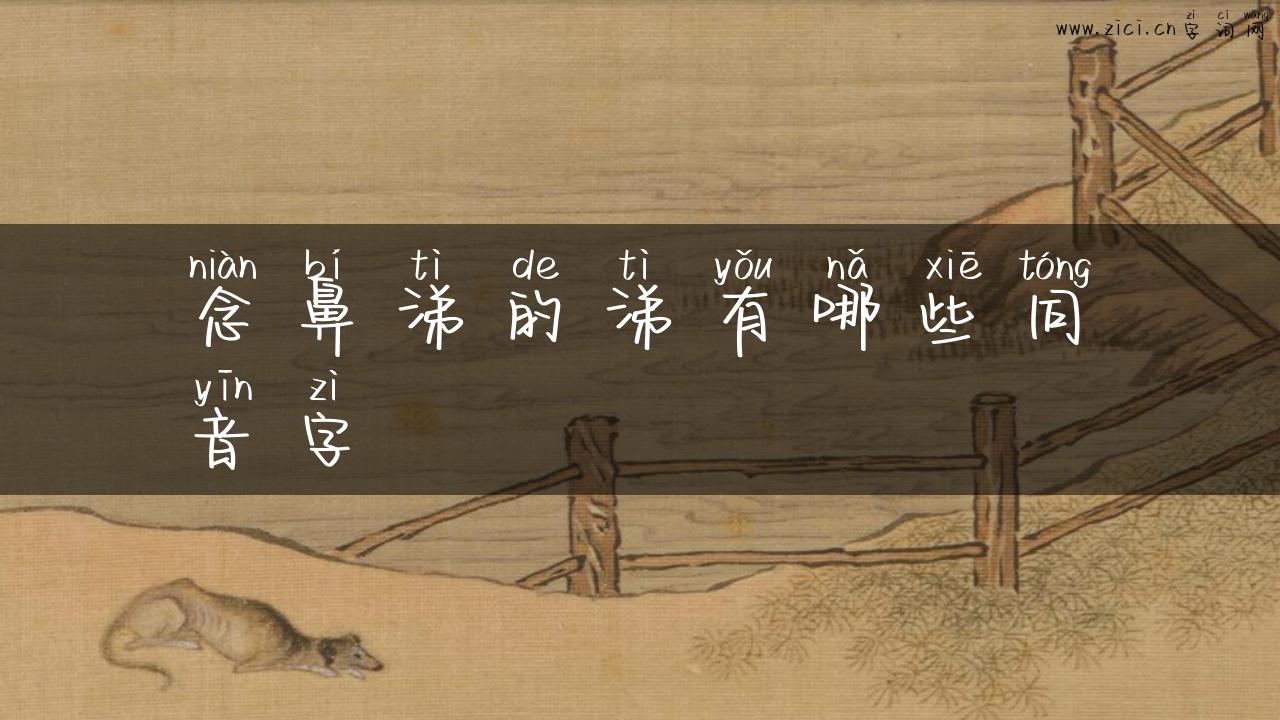 zì cí wǎng
www.zici.cn字词网
niàn bí tì de tì yǒu nǎ xiē tóng
念鼻涕的涕有哪些同
yīn zì
音字